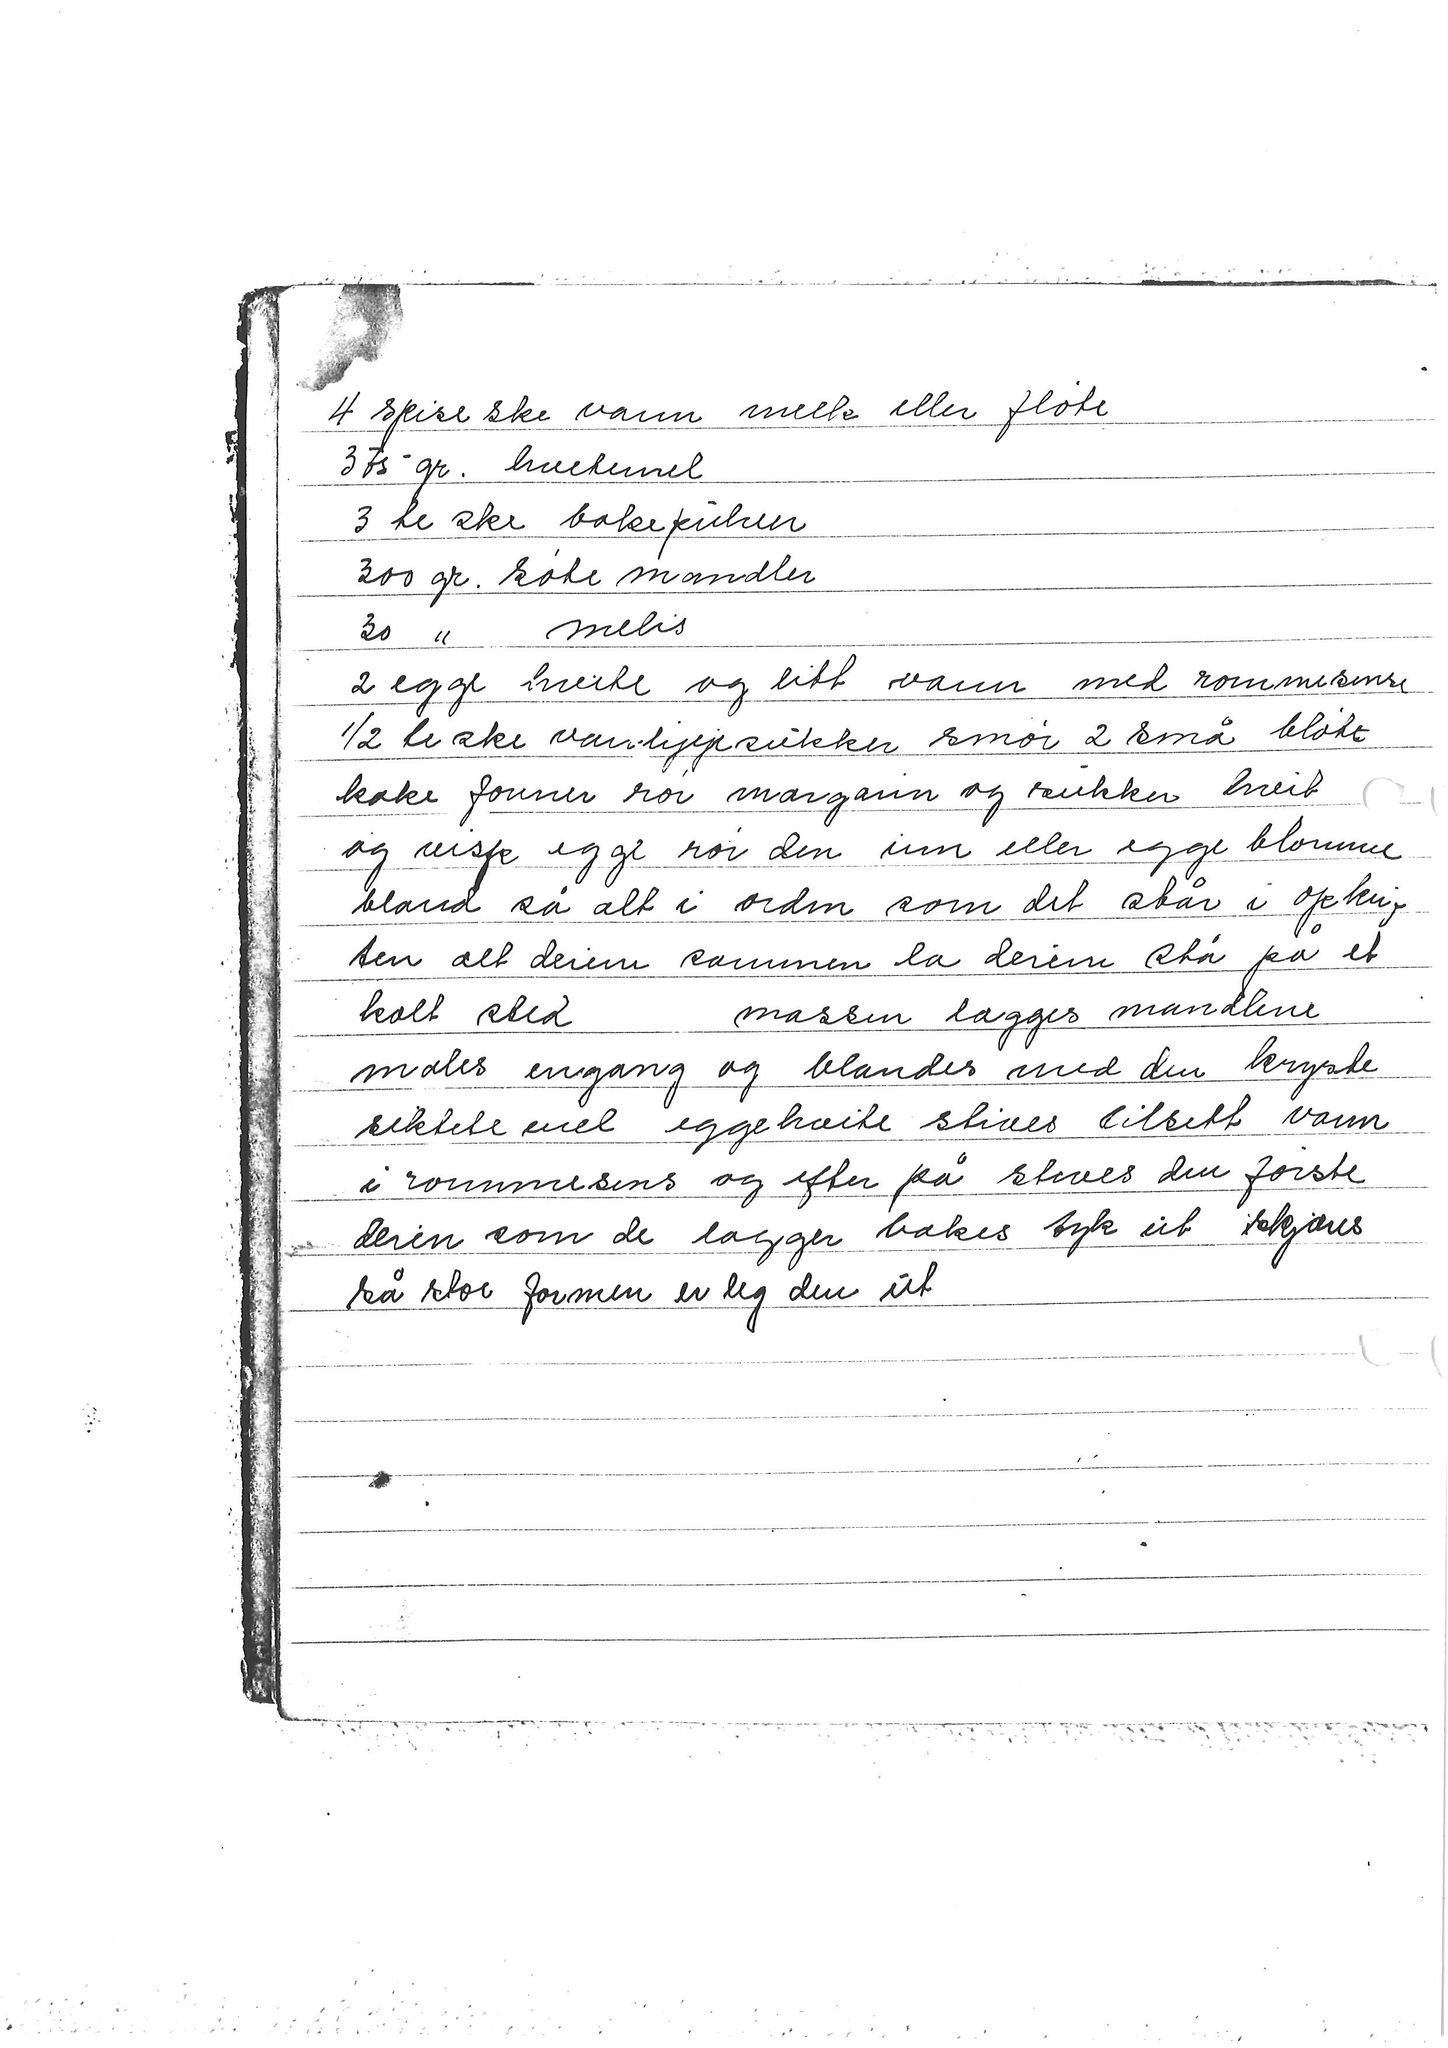 4 spise ske vann melk eller fløte
375 gr. hvetemel
3 te ske bakepulver
300 gr. søte mandler
30 " melis
2 egge hveite og litt vann med rommesense
1/2 te ske vanligje sukker smør 2 små bløte
kake former rør margarin og sukker hveit
og visp egge rør den inn eller egge blomme
bland så alt i orden som det står i opskrif
ten alt deiem sammen la deiem stå på et
kalt sted massen lagges mandlene
males engang og blandes med den kryste
siktete mel eggehveite stives tilsett vann
i rommesens og efter på stives den første
deien som de lagger bakes tyk ut skjæres
så stor formen er leg den ut